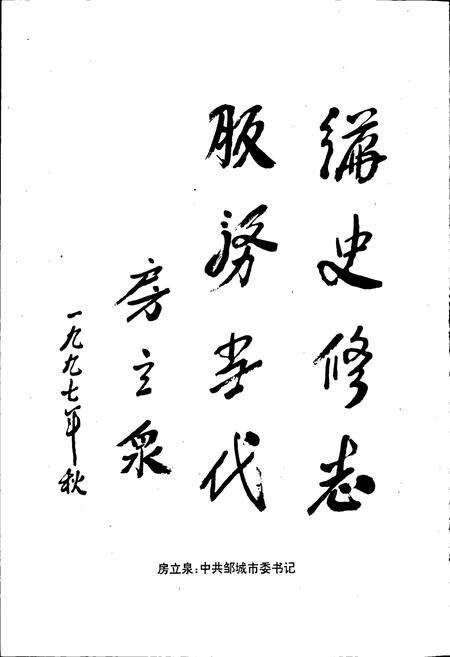 编史修志
服务当代
房立泉
一九九七年秋
房立泉:中共邹城市委书记